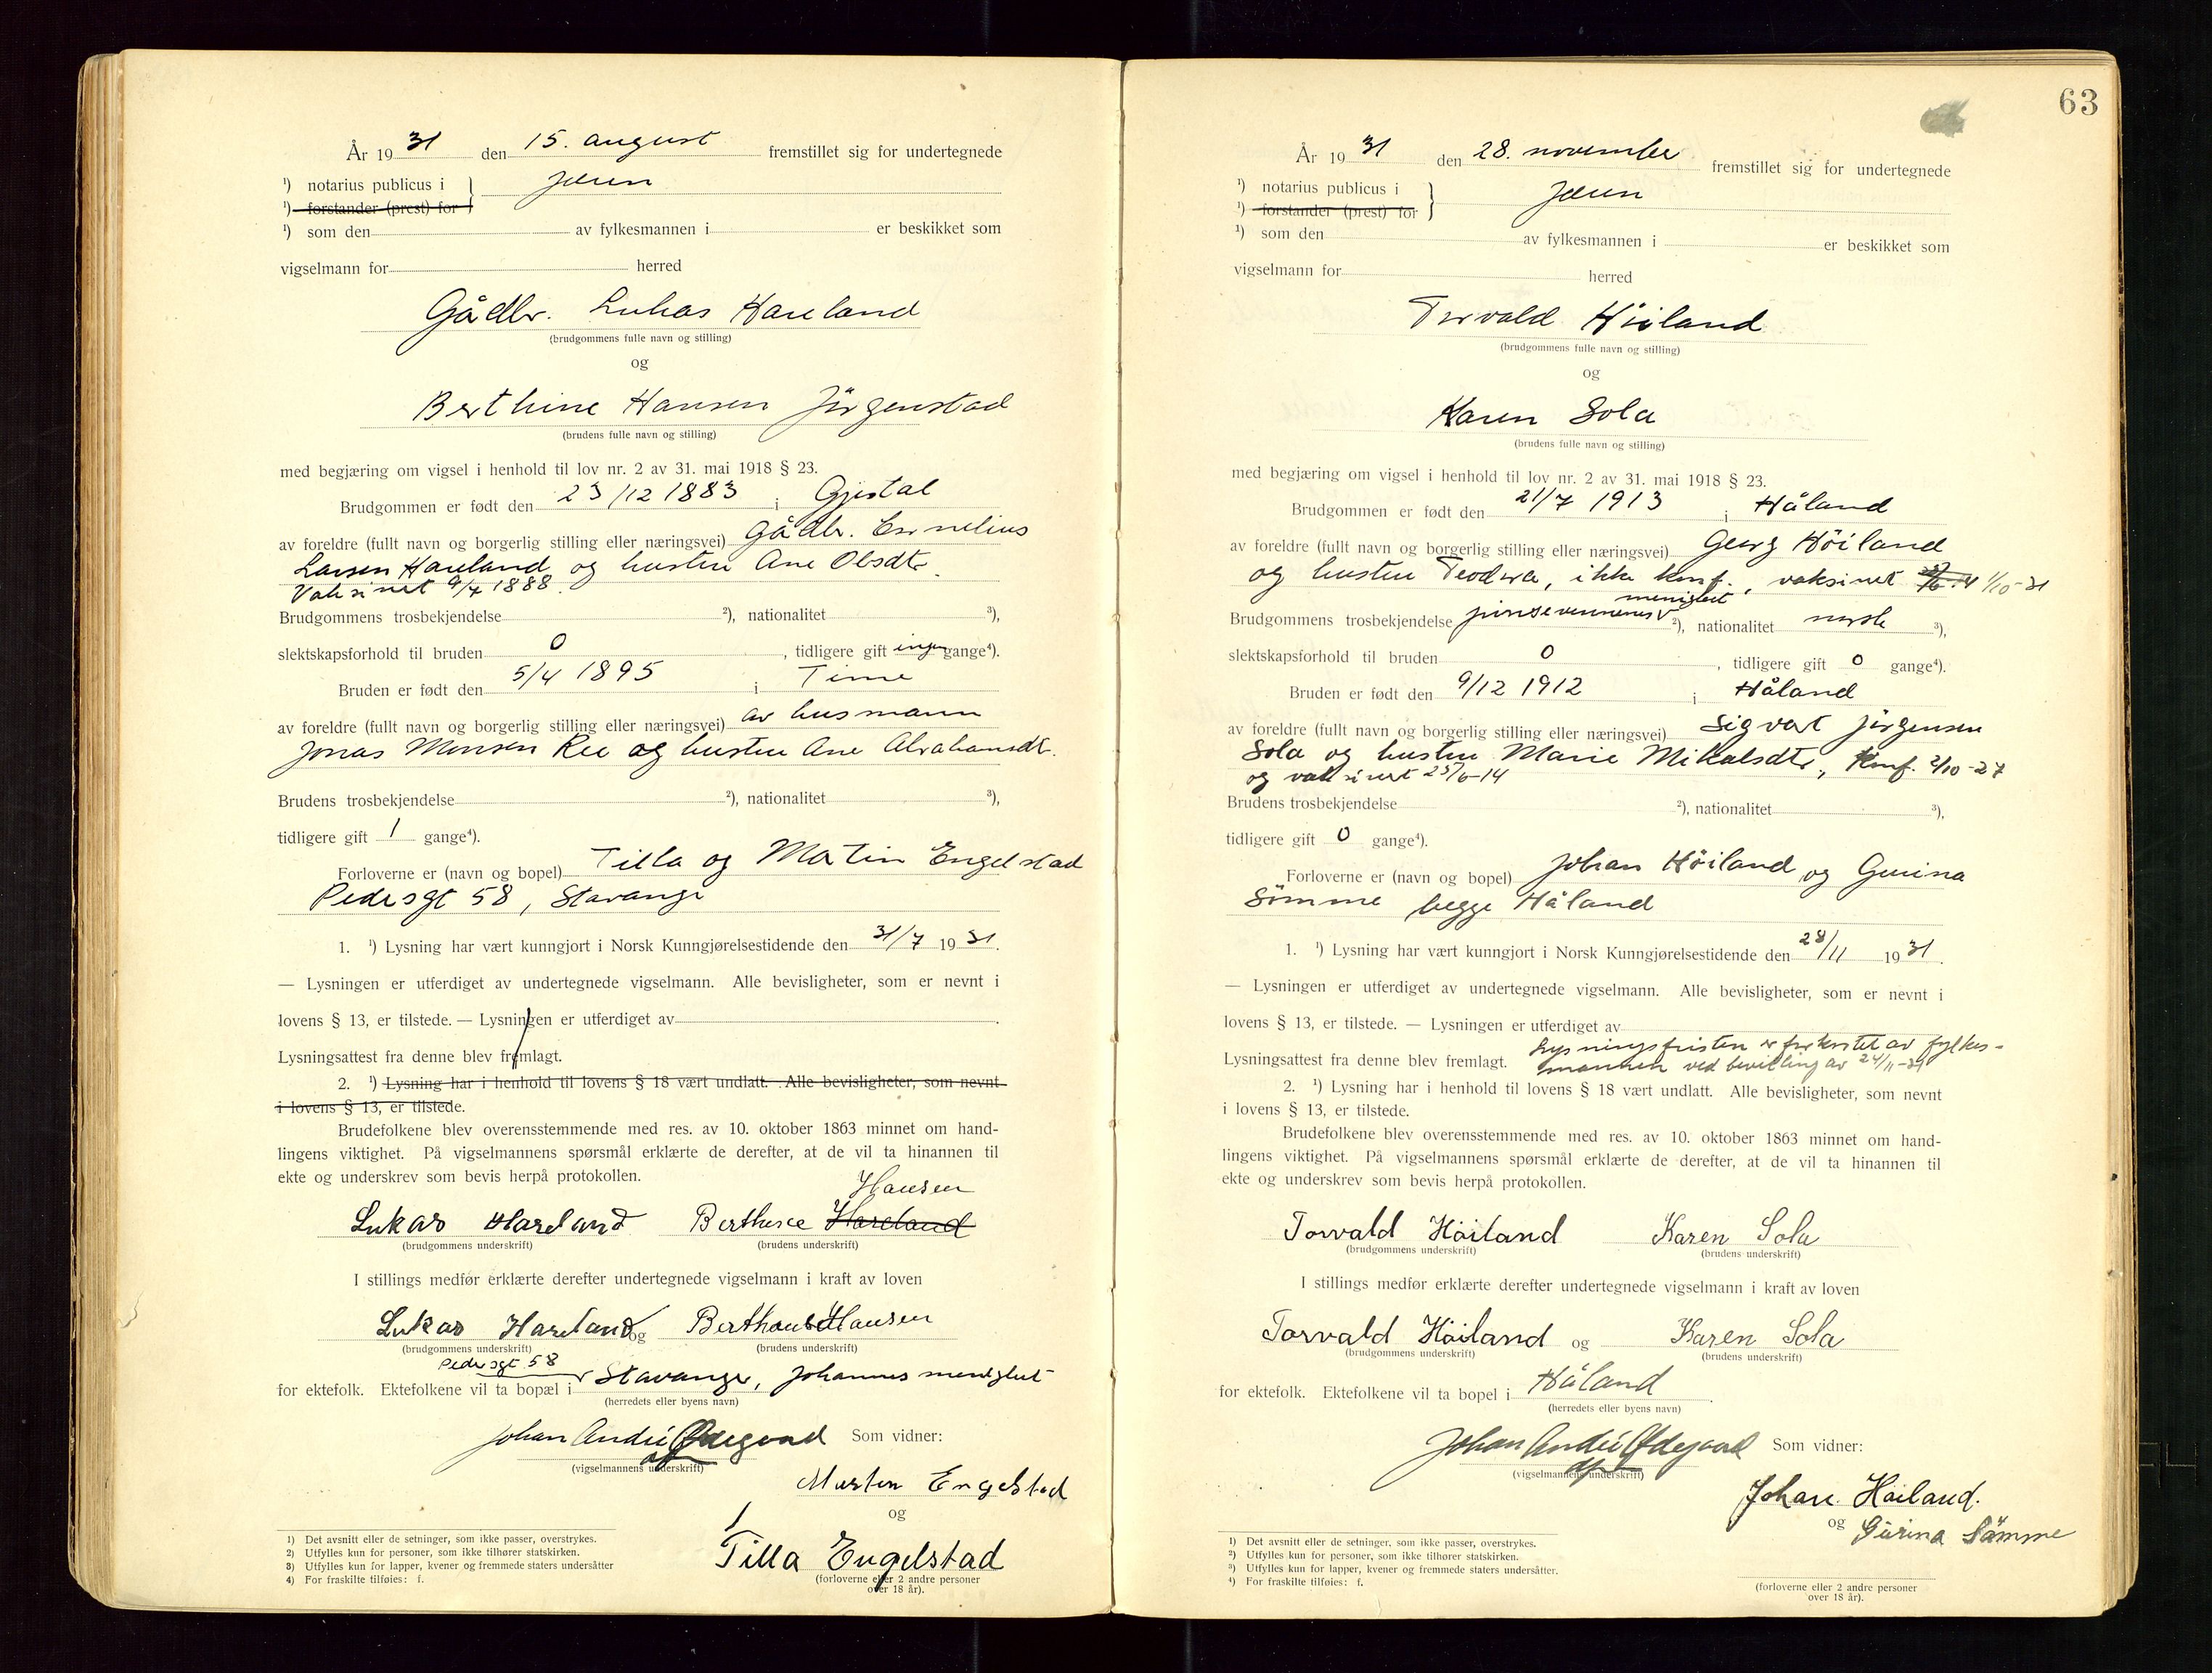 År 1931 den 15. august fremstillet sig for undertegnede
¹) notarius publicus i Jæren
¹) forstander (prest) for
¹) som den av fylkesmannen i er beskikket som
vigselmann for herred
Gådbr. Lukas Hareland
(brudgommens fulle navn og stilling)
og
Berthine Hansen Jörgenstad
(brudens fulle navn og stilling)
med begjæring om vigsel i henhold til lov nr. 2 av 31. mai 1918 § 23.
Brudgommen er født den 23/12 1883 i Gjestal
av foreldre (fullt navn og borgerlig stilling eller næringsvei) Gådbr. Cornelius
Larsen Hareland og hustru Ane Olsdtr.
Vaksinert 9/4 1888.
Brudgommens trosbekjendelse ²), nationalitet ³),
slektskapsforhold til bruden 0, tidligere gift ingen gange⁴).
Bruden er født den 5/4 1895 i Time
av foreldre (fullt navn og borgerlig stilling eller næringsvei) av husmann
Jonas Monsen Ree og hustru Ane Abrahamsdtr.
Brudens trosbekjendelse ²), nationalitet ³),
tidligere gift 1 gange⁴).
Forloverne er (navn og bopel) Tilla og Martin Engelstad
Pedersgt 58, Stavanger
1. ¹) Lysning har vært kunngjort i Norsk Kunngjørelsestidende den 31/7 1931.
— Lysningen er utferdiget av undertegnede vigselmann. Alle bevisligheter, som er nevnt i
lovens § 13, er tilstede. — Lysningen er utferdiget av .
Lysningsattest fra denne blev fremlagt.
2. ¹) Lysning har i henhold til lovens § 18 vært undlatt. Alle bevisligheter, som nevnt
i lovens § 13, er tilstede.
Brudefolkene blev overensstemmende med res. av 10. oktober 1863 minnet om hand-
lingens viktighet. På vigselmannens spørsmål erklærte de derefter, at de vil ta hinannen til
ekte og underskrev som bevis herpå protokollen.
Hansen
Lukas Hareland Berthine Hareland
(brudgommens underskrift) (brudens underskrift)
I stillings medfør erklærte derefter undertegnede vigselmann i kraft av loven
Lukas Hareland og Hansen
(brudgommens underskrift) (brudens underskrift)
Pedersgt 58
for ektefolk. Ektefolkene vil ta bopæl i Stavanger, Johannes menighet
(herredets eller byens navn)
Johan André Ødegaard Som vidner:
(vigselmannens underskrift)
Morten Engelstad
og
Tilla Engelstad
(forloverne eller 2 andre personer
over 18 år).
1) Det avsnitt eller de setninger, som ikke passer, overstrykes.
2) Utfylles kun for personer, som ikke tilhører statskirken.
3) Utfylles kun for lapper, kvener og fremmede staters undersåtter
4) For fraskilte tilføies: f.
63
År 1931 den 28. november fremstillet sig for undertegnede
¹) notarius publicus i Jæren
¹) forstander (prest) for
¹) som den av fylkesmannen i er beskikket som
vigselmann for herred
Torvald Höiland
(brudgommens fulle navn og stilling)
og
Karen Sola
(brudens fulle navn og stilling)
med begjæring om vigsel i henhold til lov nr. 2 av 31. mai 1918 § 23.
Brudgommen er født den 21/7 1913 i Håland
av foreldre (fullt navn og borgerlig stilling eller næringsvei) Georg Höiland
og hustru Teodora, ikke konf., vaksinert 1/10-31
menighet
Brudgommens trosbekjendelse pinsevennenes ²), nationalitet norsk ³),
slektskapsforhold til bruden 0, tidligere gift 0 gange⁴).
Bruden er født den 9/12 1912 i Håland
av foreldre (fullt navn og borgerlig stilling eller næringsvei) Sigvart Jörgensen
Sola og hustru Marie Mikalsdtr., Konf. 2/10-27
og vaksinert 25/6-14
Brudens trosbekjendelse ²), nationalitet ³),
tidligere gift 0 gange⁴).
Forloverne er (navn og bopel) Johan Höiland og Gurina
Sömme begge Håland
1. ¹) Lysning har vært kunngjort i Norsk Kunngjørelsestidende den 28/11 1931.
— Lysningen er utferdiget av undertegnede vigselmann. Alle bevisligheter, som er nevnt i
lovens § 13, er tilstede. — Lysningen er utferdiget av
Lysningsattest fra denne blev fremlagt. Lysningsfristen er forkortet av fylkes-
mannen ved bevilling av 24/11-31
2. ¹) Lysning har i henhold til lovens § 18 vært undlatt. Alle bevisligheter, som nevnt
i lovens § 13, er tilstede.
Brudefolkene blev overensstemmende med res. av 10. oktober 1863 minnet om hand-
lingens viktighet. På vigselmannens spørsmål erklærte de derefter, at de vil ta hinannen til
ekte og underskrev som bevis herpå protokollen.
Torvald Höiland Karen Sola
(brudgommens underskrift) (brudens underskrift)
I stillings medfør erklærte derefter undertegnede vigselmann i kraft av loven
Torvald Höiland og Karen Sola
(brudgommens underskrift) (brudens underskrift)
for ektefolk. Ektefolkene vil ta bopel i Håland.
(herredets eller byens navn)
Johan André Ødegaard Som vidner:
(vigselmannens underskrift)
Johan. Höiland.
og Gurina Sömme
(forloverne eller 2 andre personer
over 18 år).
¹) Det avsnitt eller de setninger, som ikke passer, overstrykes.
²) Utfylles kun for personer, som ikke tilhører statskirken.
³) Utfylles kun for lapper, kvener og fremmede staters undersåtter.
⁴) For fraskilte tilføies: f.